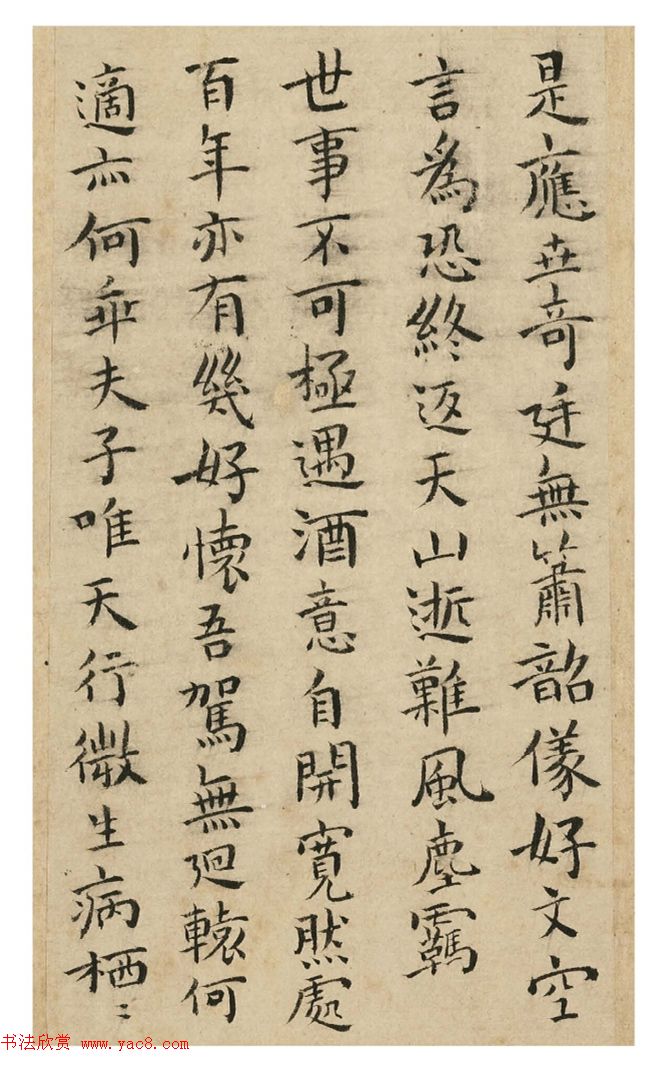 是應世奇廷無簫韶儀好文空
言為恐終返天山逝難風塵羈
世事不可極遇酒意自開寬然處
百年亦有幾好懷吾駕無迴轅何
適亦何乖夫子唯天行微生病栖〻
书法欣赏 www.yac8.com